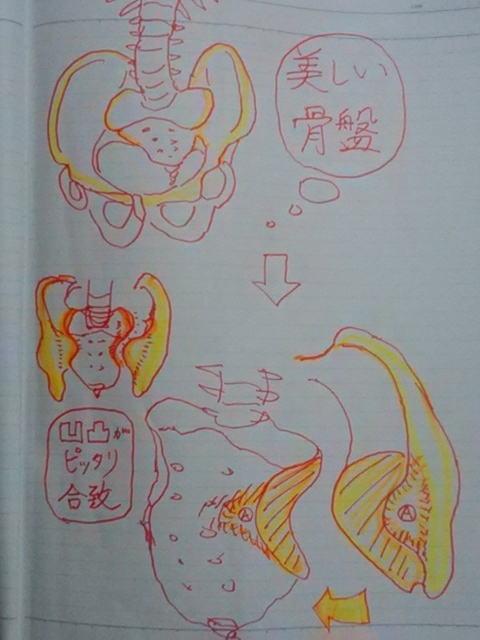 美しい
骨盤
凹凸が
ピッタリ
合致
A
A